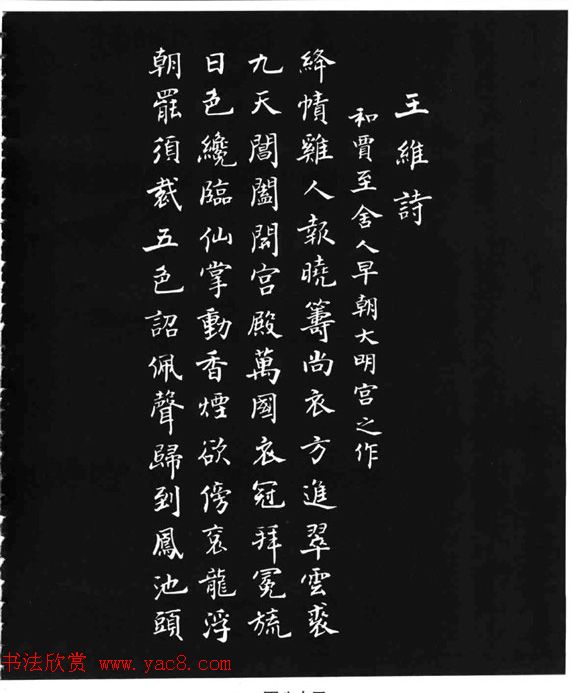 王維詩
和賈至舍人早朝大明宮之作
絳幘雞人報曉籌尚衣方進翠雲裘
九天閶闔開宮殿萬國衣冠拜冕旒
日色纔臨仙掌動香煙欲傍袞龍浮
朝罷須裁五色詔佩聲歸到鳳池頭
书法欣赏 www.yac8.com